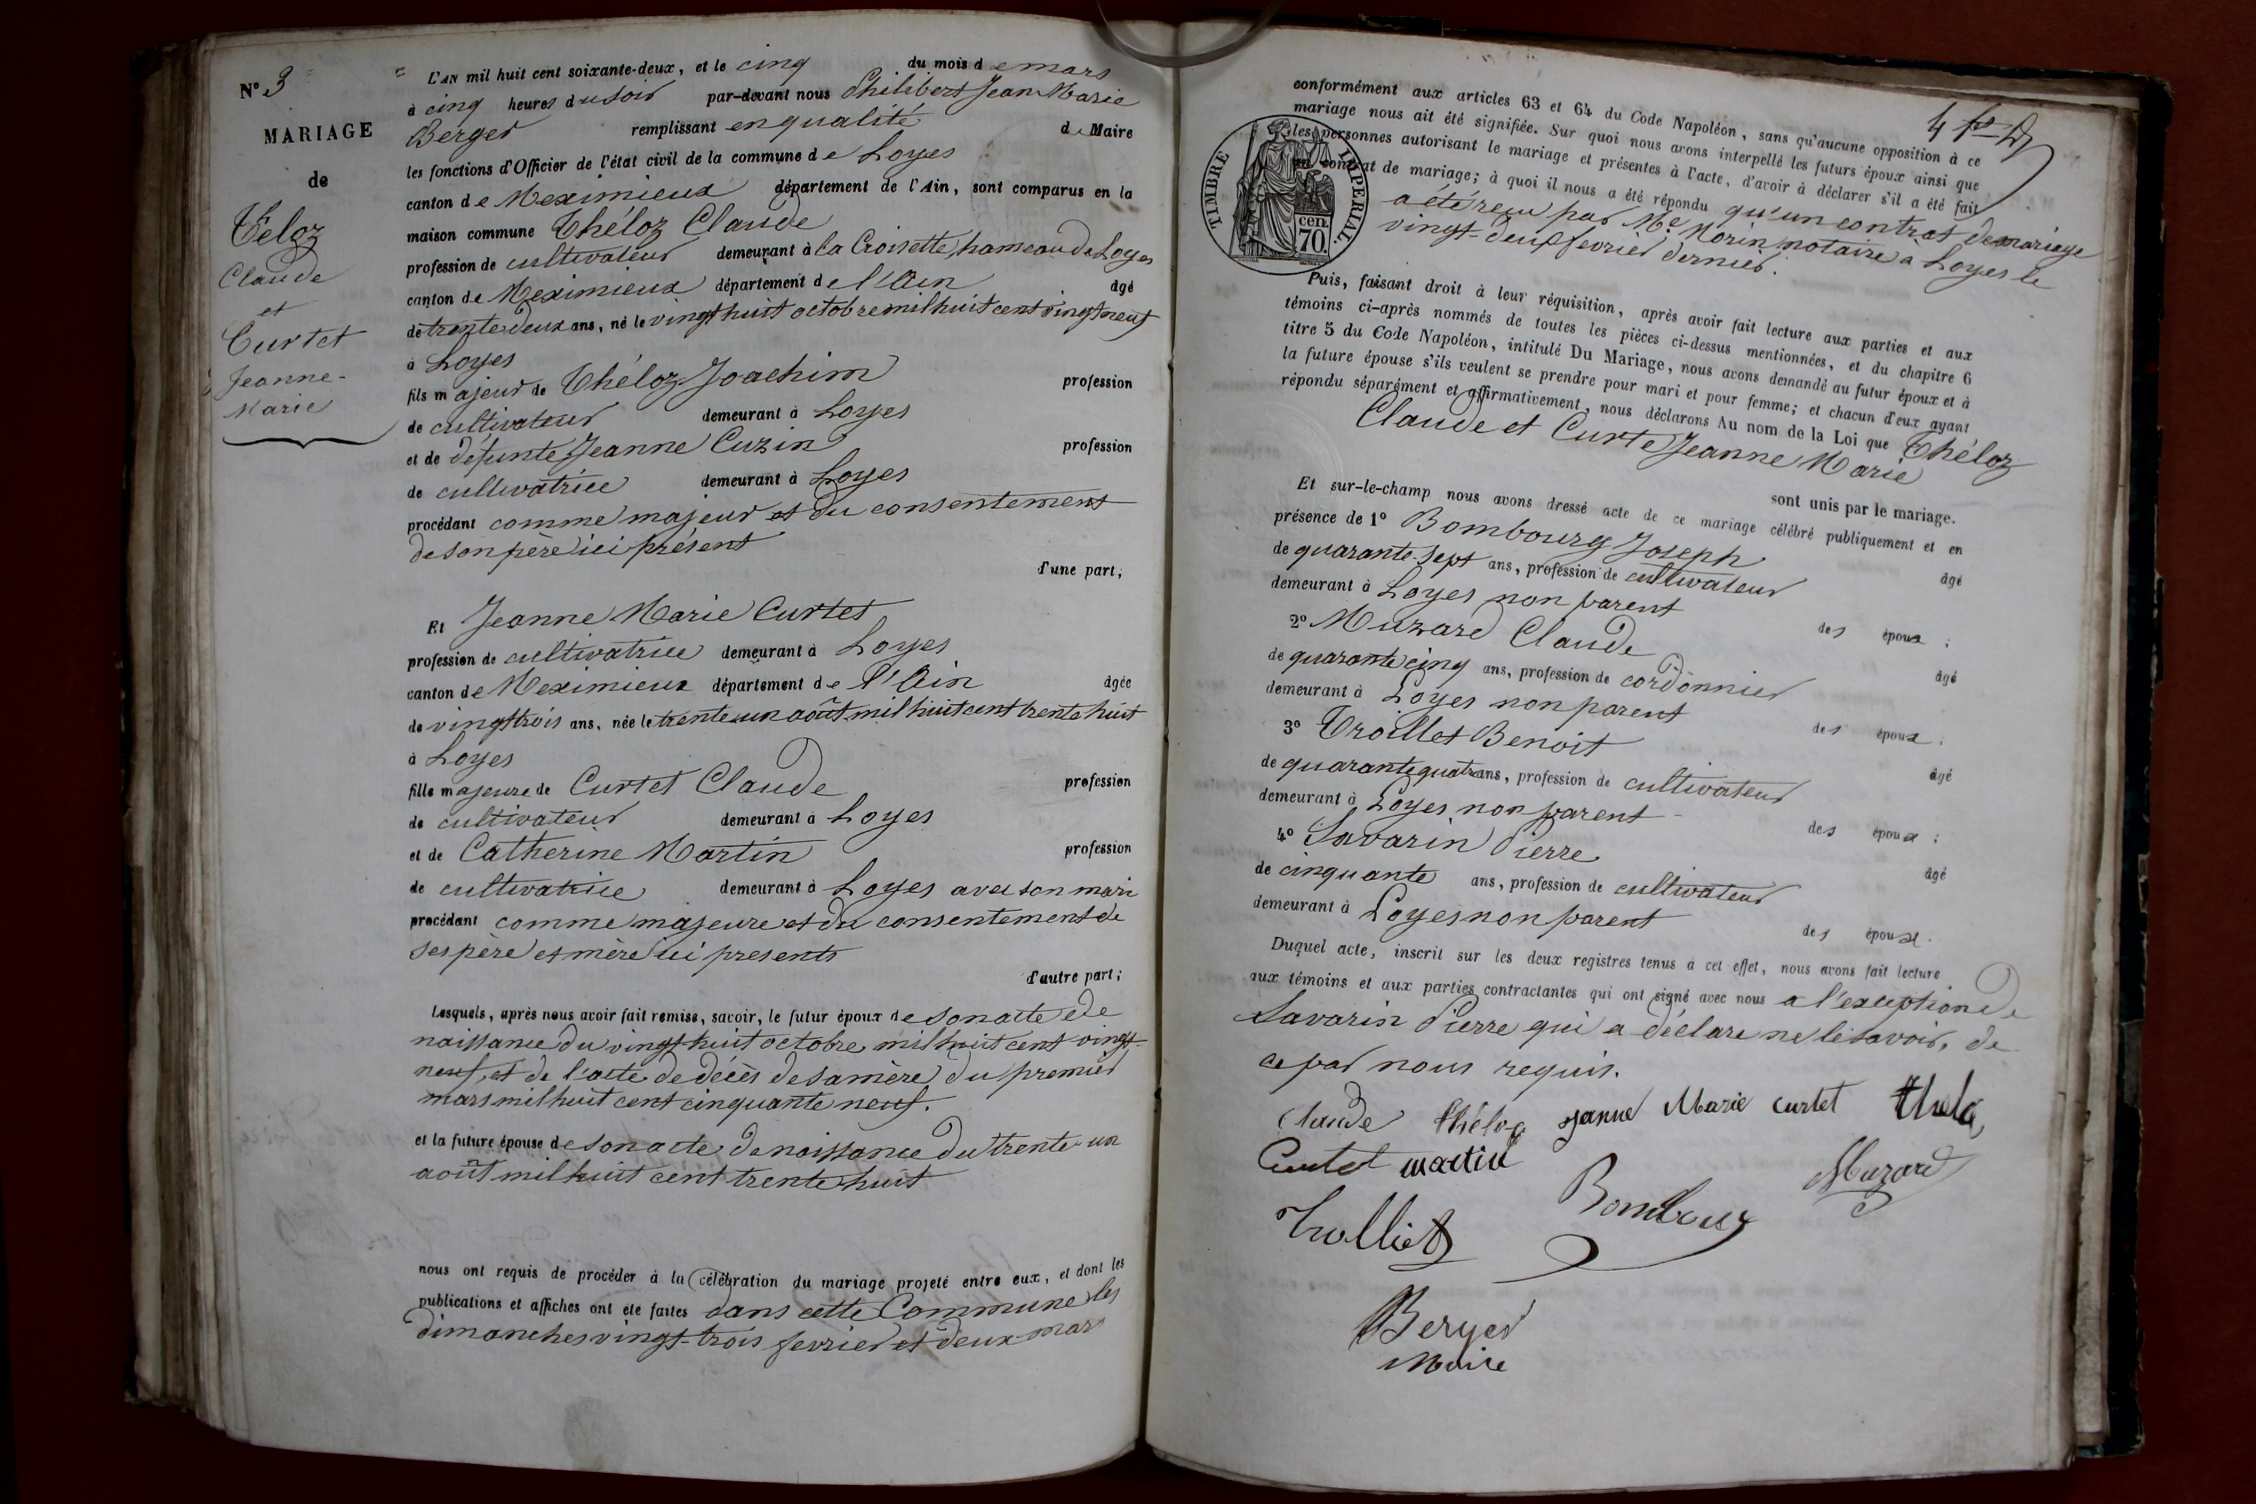 N° 3
MARIAGE
de
Téloz
Claude
et
Curtet
Jeanne-
Marie
L'AN mil huit cent soixante-deux, et le cinq du mois de mars
à cinq heures du soir par-devant nous Philibert Jean Marie
Berger remplissant en qualité de Maire
les fonctions d'Officier de l'état civil de la commune de Loyes
canton de Meximieux département de l'Ain, sont comparus en la
maison commune Théloz Claude
profession de cultivateur demeurant à la Croisette, hameau de Loyes
canton de Meximieux département de l'Ain âgé
de trente deux ans, né le vingt huit octobre mil huit cent vingt neuf
à Loyes
fils majeur de Théloz Joachim profession
de cultivateur demeurant à Loyes
et de défunte Jeanne Cuzin profession
de cultivatrice demeurant à Loyes
procédant comme majeur et du consentement
de son père ici présent
d'une part;
Et Jeanne Marie Curtet
profession de cultivatrice demeurant à Loyes
canton de Meximieux département de l'Ain âgée
de vingt trois ans, née le trente un août mil huit cent trente huit
à Loyes
fille majeure de Curtet Claude profession
de cultivateur demeurant à Loyes
et de Catherine Martin profession
de cultivatrice demeurant à Loyes avec son mari
procédant comme majeure et du consentement de
ses père et mère ici presents
d'autre part;
Lesquels, après nous avoir fait remise, savoir, le futur époux de son acte de
naissance du vingt huit octobre mil huit cent vingt-
neuf, et de l'acte de décès de sa mère du premier
mars mil huit cent cinquante neuf.
et la future épouse de son acte de naissance du trente-un
août mil huit cent trente huit
nous ont requis de procéder à la célébration du mariage projeté entre eux, et dont les
publications et affiches ont été faites dans cette Commune les
dimanches vingt-trois fevrier et deux mars
conformément aux articles 63 et 64 du Code Napoléon, sans qu'aucune opposition à ce
mariage nous ait été signifiée. Sur quoi nous avons interpellé les futurs époux ainsi que
les personnes autorisant le mariage et présentes à l'acte, d'avoir à déclarer s'il a été fait
un contrat de mariage; à quoi il nous a été répondu qu'un contrat de mariage
a été reçu par Me Morin notaire à Loyes le
vingt-deux fevrier dernier.
TIMBRE IMPERIAL.
cen.
70
Puis, faisant droit à leur réquisition, après avoir fait lecture aux parties et aux
témoins ci-après nommés de toutes les pièces ci-dessus mentionnées, et du chapitre 6
titre 5 du Code Napoléon, intitulé Du Mariage, nous avons demandé au futur époux et à
la future épouse s'ils veulent se prendre pour mari et pour femme; et chacun d'eux ayant
répondu séparément et affirmativement, nous déclarons Au nom de la Loi que Théloz
Claude et Curte Jeanne Marie
sont unis par le mariage.
Et sur-le-champ nous avons dressé acte de ce mariage célébré publiquement et en
présence de 1° Bombourg Joseph âgé
de quarante-sept ans, profession de cultivateur
demeurant à Loyes non parent des époux;
2° Muzard Claude âgé
de quarante cinq ans, profession de cordonnier
demeurant à Loyes non parent des époux;
3° Troillet Benoit âgé
de quarante quatre ans, profession de cultivateur
demeurant à Loyes non parent des époux;
4° Savarin Pierre âgé
de cinquante ans, profession de cultivateur
demeurant à Loyes non parent des époux.
Duquel acte, inscrit sur les deux registres tenus à cet effet, nous avons fait lecture
aux témoins et aux parties contractantes qui ont signé avec nous a l'exception de
Savarin Pierre qui a déclare ne le savoir, de
ce par nous requis.
Claude théloz jeanne Marie curtet
Curtet martin Muzard
Trolliet Bombourg
Berger
Maire